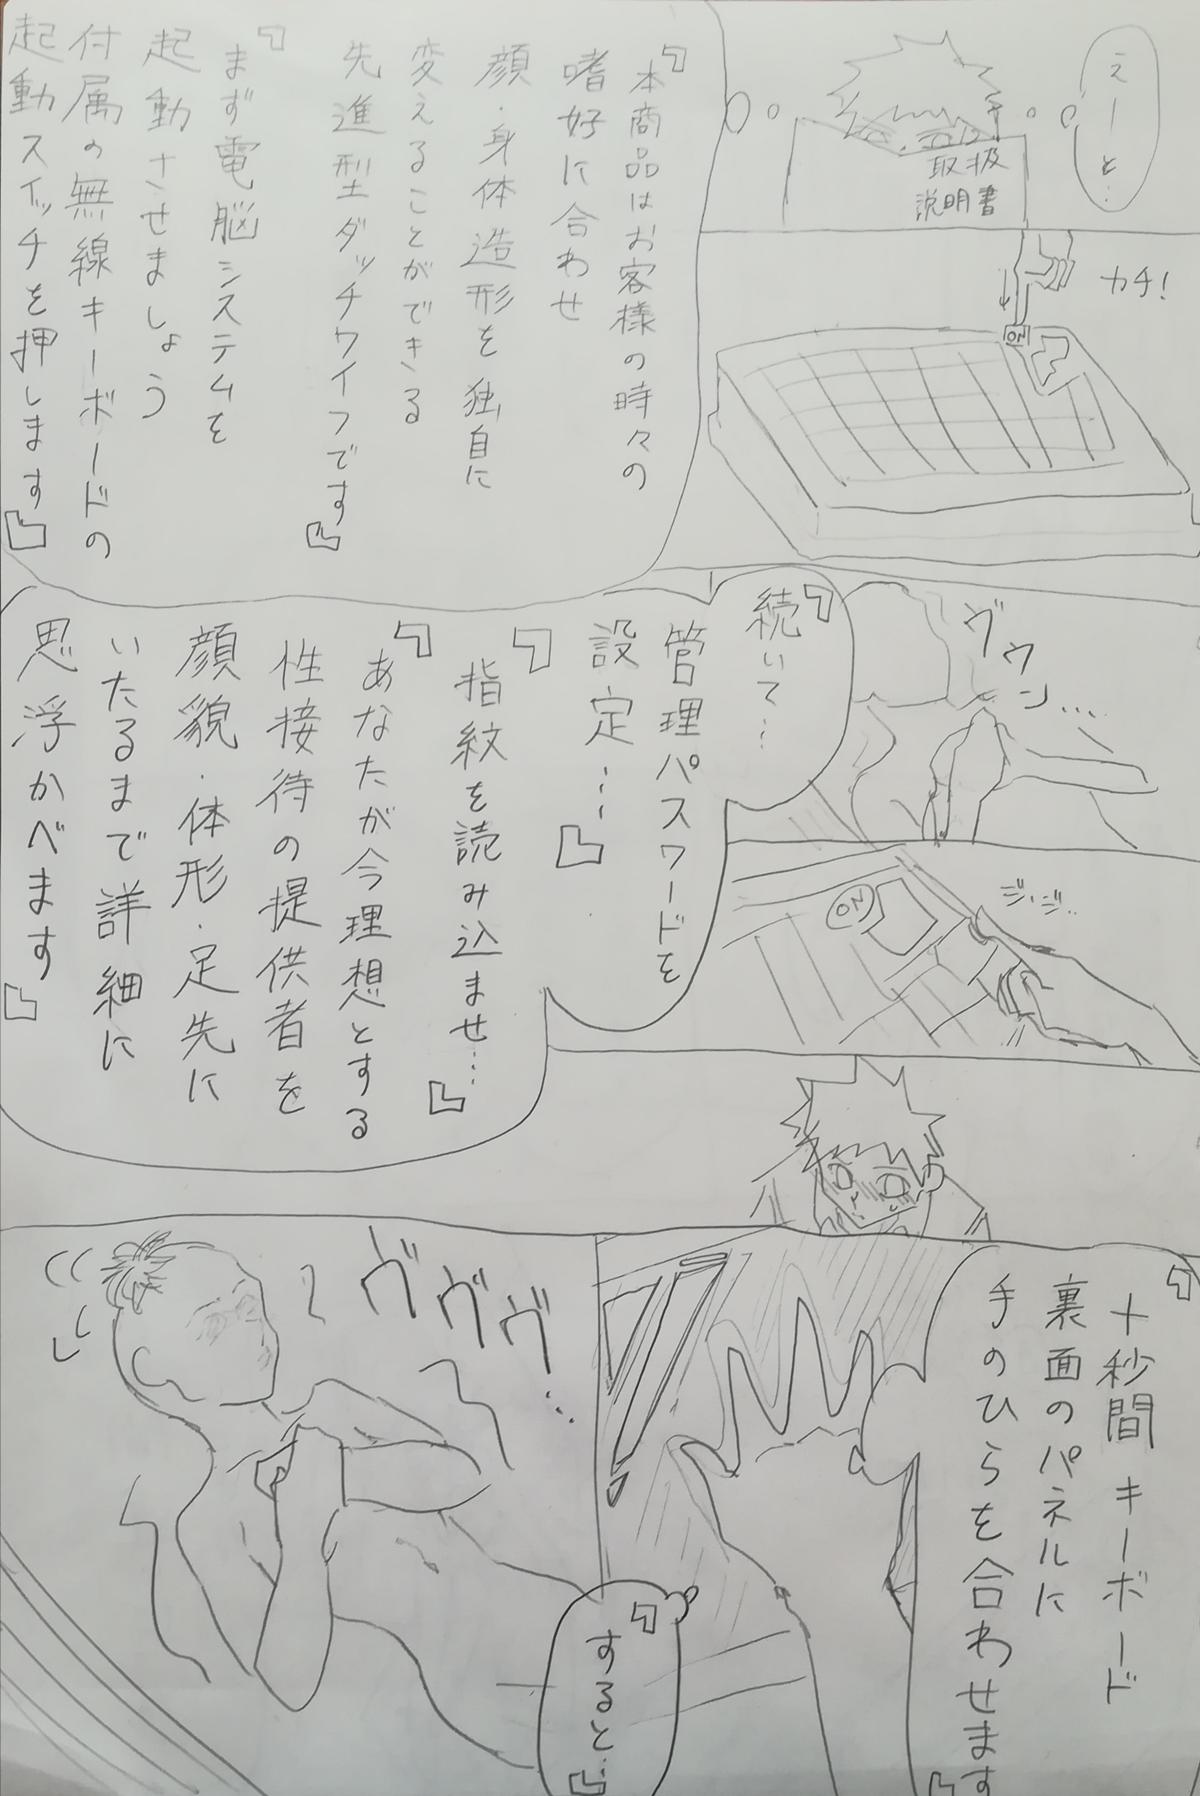 えーと…
取扱
説明書
『本商品はお客様の時々の
嗜好に合わせ
顔・身体造形を独自に
変えることができる
先進型ダッチワイフです』
『まず電脳システムを
起動させましょう
付属の無線キーボードの
起動スイッチを押します』
カチ!
ON
ヴウン…
『続いて…
管理パスワードを
設定…』
『指紋を読み込ませ…』
『あなたが今理想とする
性接待の提供者を
顔貌・体形・足先に
いたるまで詳細に
思浮かべます』
ジ・ジ・・
ON
『十秒間キーボード
裏面のパネルに
手のひらを合わせます』
『すると…』
ヴヴヴ…